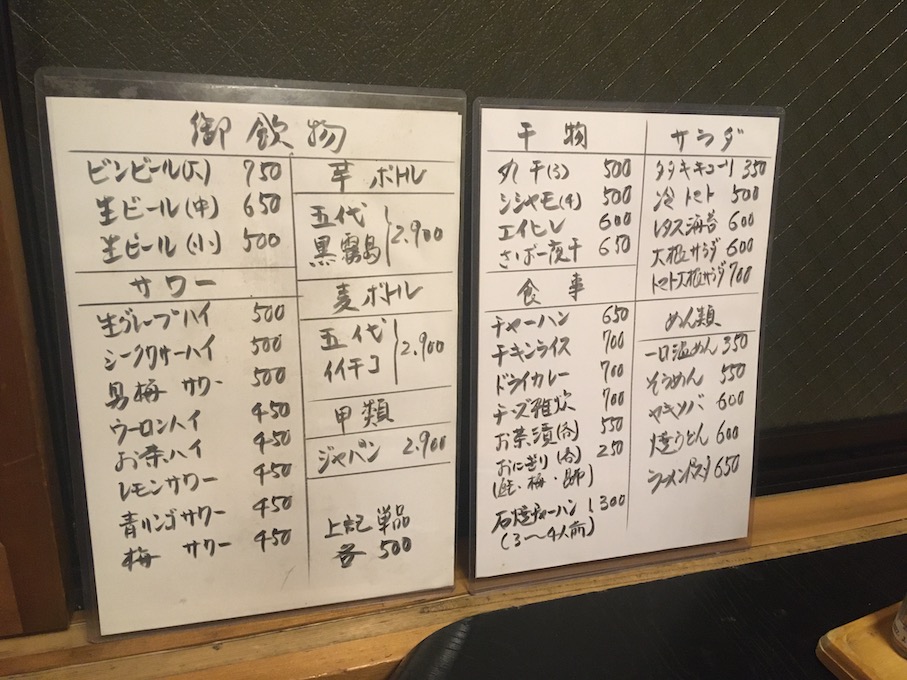 御飲物
ビンビール(大) 750
生ビール(中) 650
生ビール(小) 500
サワー
生グレープハイ 500
シークワサーハイ 500
男梅 サワー 500
ウーロンハイ 450
お茶ハイ 450
レモンサワー 450
青リンゴサワー 450
梅 サワー 450
芋 ボトル
五代
黒霧島 2.900
麦ボトル
五代
イイチコ 2.900
甲類
ジャパン 2.900
上記単品
各 500
干物
丸干(3) 500
シシャモ(4) 500
エイヒレ 600
さば一夜干 650
食事
チャーハン 650
チキンライス 700
ドライカレー 700
チーズ雑炊 700
お茶漬(各) 550
おにぎり(各) 250
(鮭・梅・昆布)
石焼チャーハン 1300
(3〜4人前)
サラダ
タタキキューリ 350
冷トマト 500
レタス海苔 600
大根サラダ 600
トマト大根サラダ 700
めん類
一口温めん 350
そうめん 550
ヤキソバ 600
焼うどん 600
ラーメン 650